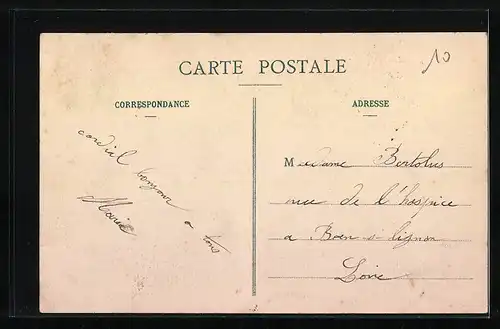 10
CARTE POSTALE
CORRESPONDANCE
ADRESSE
cordial bonjour a tous
Marie
Madame Bertolus
rue de l'hospice
a Boen s- lignon
Loire